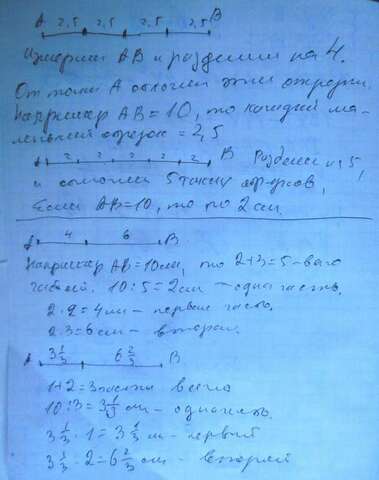 A 2,5 2,5 2,5 2,5 B
Измерим AB и разделим на 4.
От точки A отложем эти отрезки.
Например AB = 10, то каждый ма-
ленький отрезок = 2,5
A 2 2 2 2 2 B Разделим на 5,
и отложем 5 таких отрезков,
Если AB = 10, то по 2 см.
A 4 6 B
Например AB = 10 см, то 2+3=5 - всего
частей. 10 : 5 = 2 см - одна часть.
2 · 2 = 4 см - первая часть.
2 · 3 = 6 см - вторая.
A 3 1/3 6 2/3 B
1+2=3 части всего
10 : 3 = 3 1/3 см - одна часть.
3 1/3 · 1 = 3 1/3 см - первый
3 1/3 · 2 = 6 2/3 см - второй